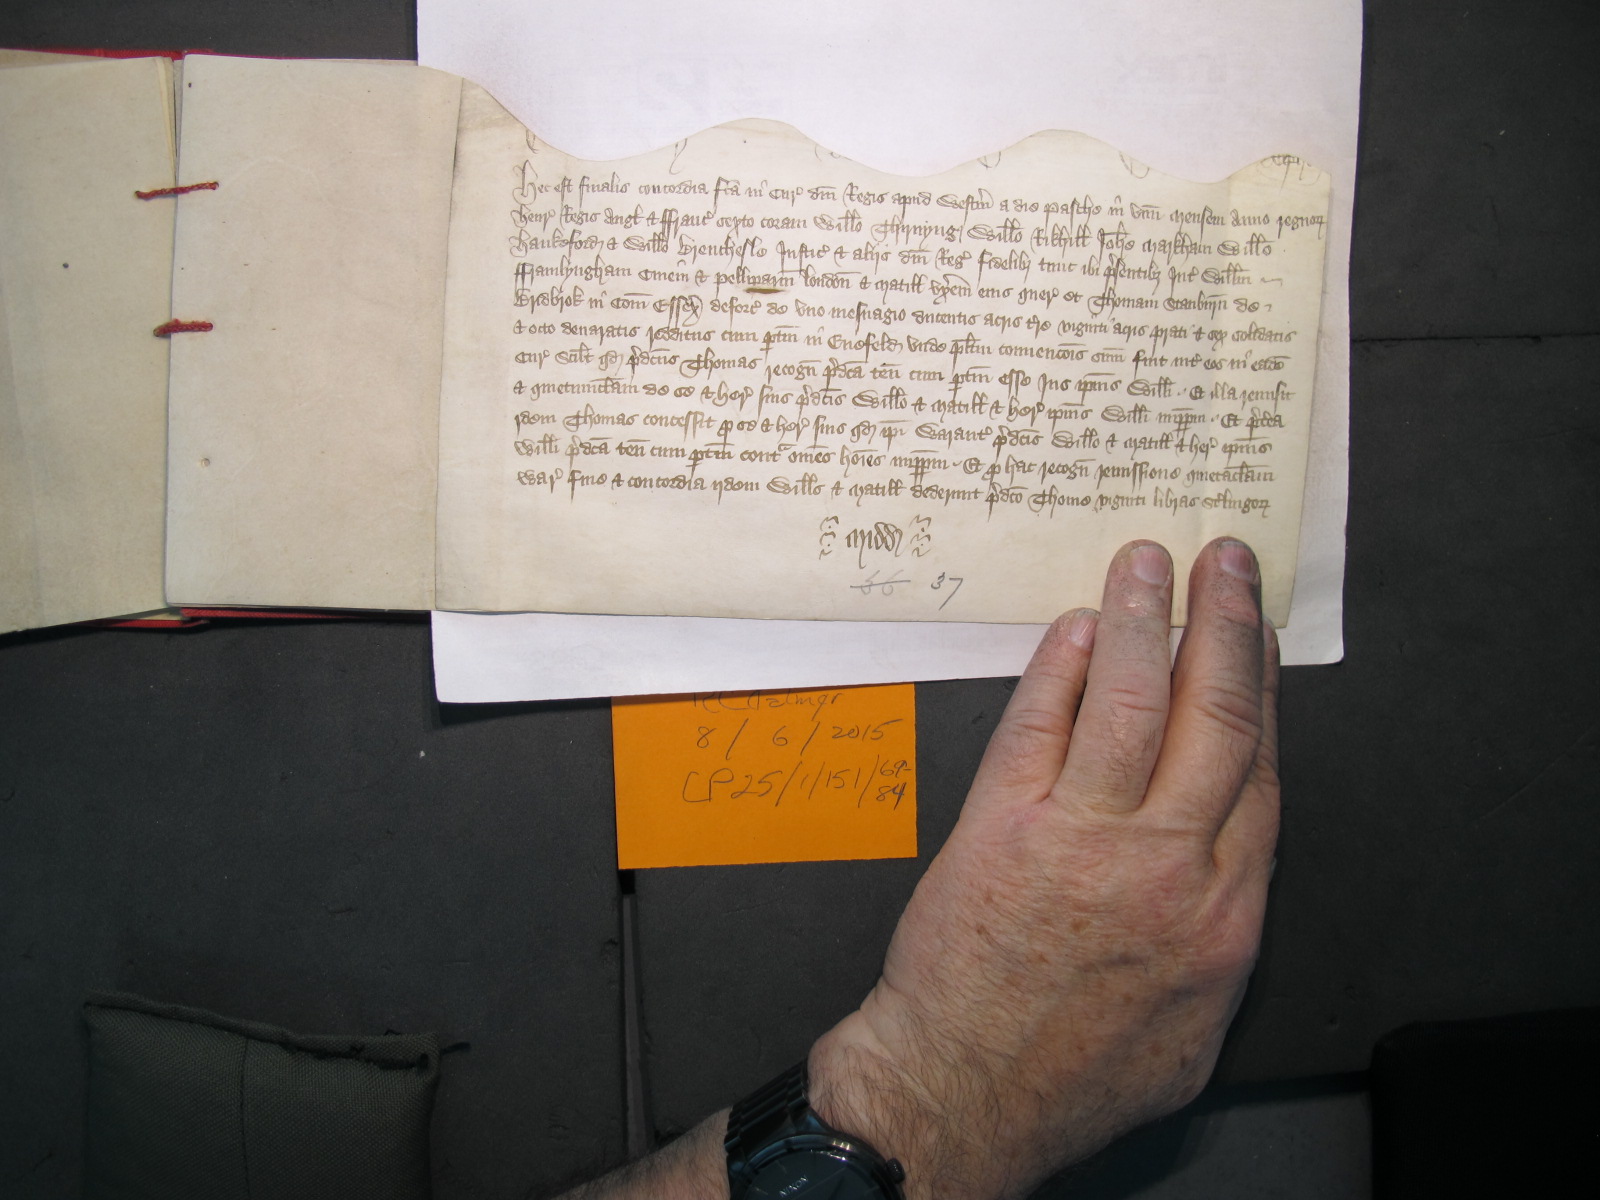 Hec est finalis concordia fca in Cur dni Regis apud Westm a die Pasche in unu mensem Anno regnor
Henr Regis Angl & Ffranc septo coram Willo Thirnyng Willo Rikhill Johe Markham Willo
Hankeford & Willo Brencheslo Justic & aliis dni Reg fidelibz tunc ibi psentibz Int Willm
Fframlyngham Civem & pelliparm London & Matill uxem eius quer et Thomam Stanburn de
Bridbrok in Com Essex deforc de uno mesuagio ducentis acris tre viginti acris prati & sex solidatis
& octo denaratis redditus cum ptin in Enefeld unde plitm convencois sum fuit int eos in eadem
Cur Scilt qd pdcus Thomas recogn pdca ten cum ptin esse Jus ipius Willi Et illa remisit
& quietumclam de se & her suis pdcis Willo & Matill & her ipius Willi imppm Et pterea
idem Thomas concessit p se & her suis qd ipi Warant pdcis Willo & Matill & her ipius
Willi pdca ten cum ptin contra omes hoies imppm Et p hac recogn remissione quietaclam
War fine & concordia idem Wills & Matill dederunt pdco Thome viginti libras stlingor
Midd
66 37
8 / 6 / 2015
CP25/1/151/69-
84